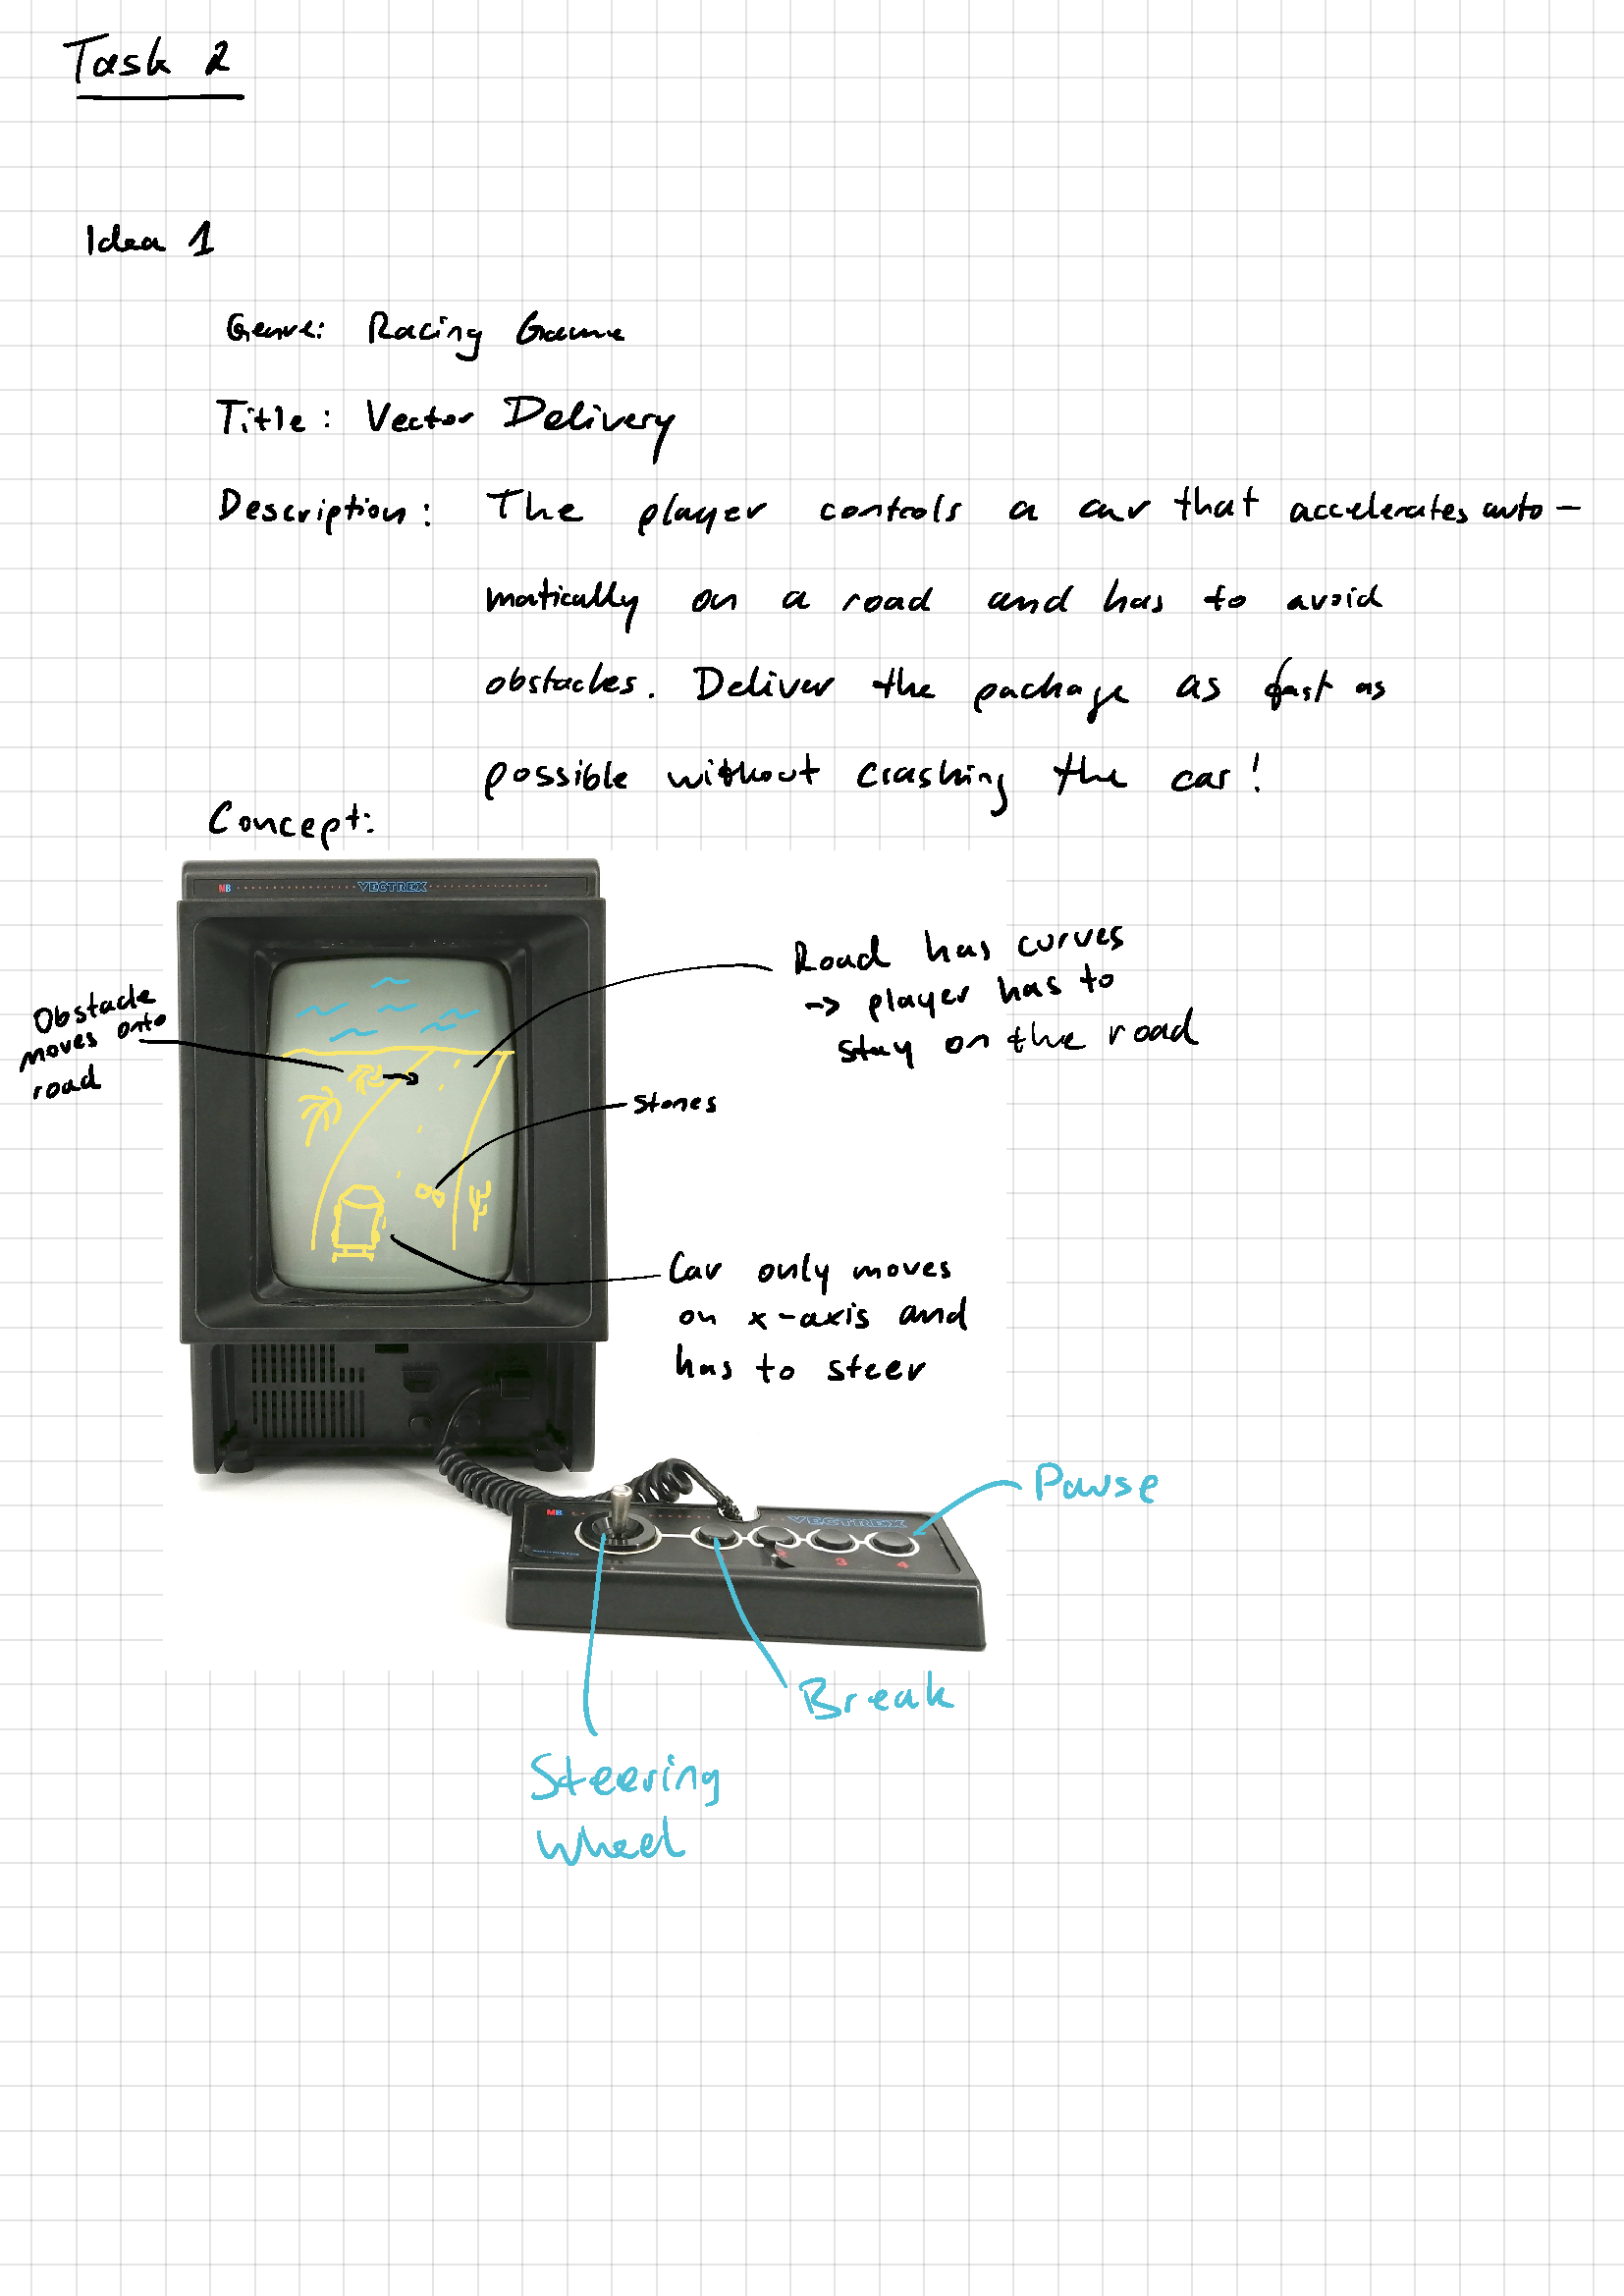 Task 2
Idea 1
Genre: Racing Game
Title: Vector Delivery
Description: The player controls a car that accelerates auto-
matically on a road and has to avoid
obstacles. Deliver the package as fast as
possible without crashing the car!
Concept:
MB VECTREX
Road has curves
-> player has to
stay on the road
Obstacle
moves onto
road
Stones
Car only moves
on x-axis and
has to steer
Pause
MB VECTREX
2 3 4
Break
Steering
Wheel